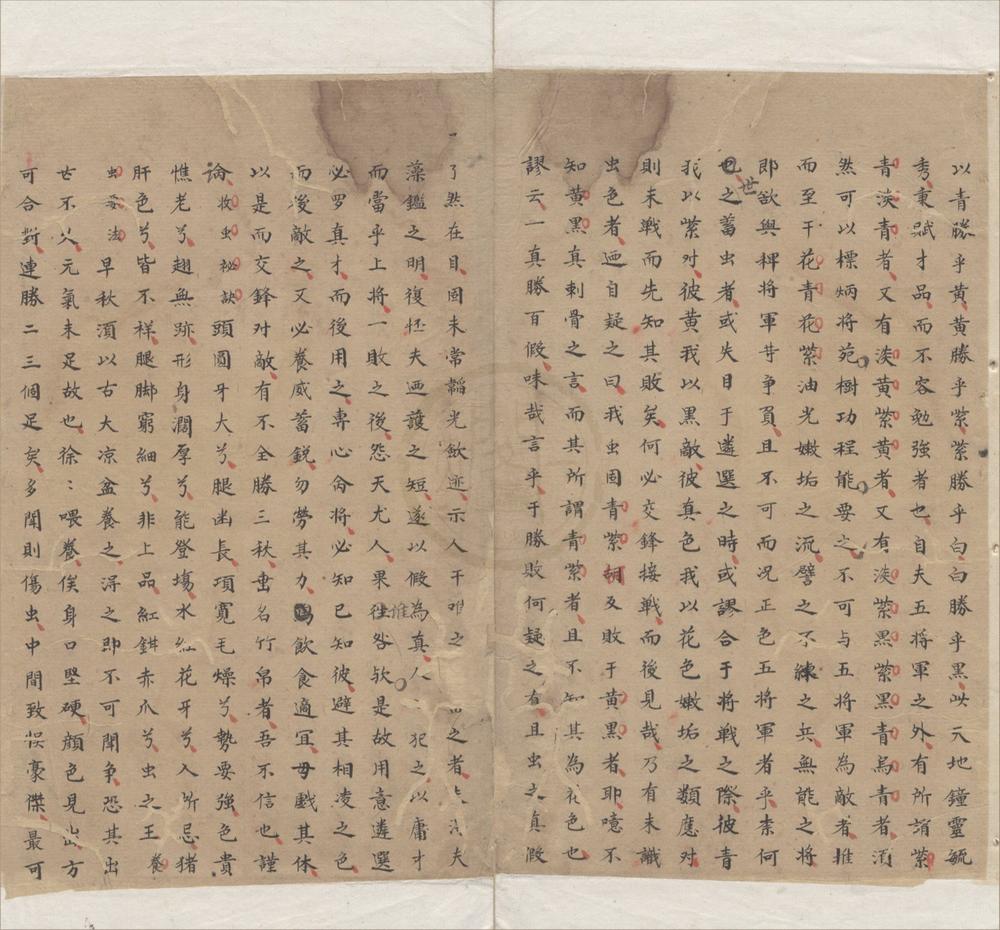 以青勝乎黃黃勝乎紫紫勝乎白白勝乎黑此天地鐘靈毓
秀秉賦才品而不容勉強者也自夫五將軍之外有所謂紫
青淡青者又有淡黃紫黃者又有淡紫黑紫黑青烏青者須
然可以標炳將苑樹功程能要之不可与五將軍為敵者推
而至于花青花紫油光嫩垢之流譬之不練之兵無能之將
即欲與稗將軍苛爭頁且不可而況正色五將軍者乎柰何
世之蓄虫者或失目于遴選之時或謬合于將戰之際彼青
我以紫对彼黃我以黑敵彼真色我以花色嫩垢之類應对
則未戰而先知其敗矣何必交鋒接戰而後見哉乃有未識
虫色者迺自疑之曰我虫固青紫胡反敗于黃黑者耶噫不
知黃黑真刺骨之言而其所謂青紫者且不知其為花色也
謬云一真勝百假味哉言乎于勝敗何疑之有且虫之真假
了然在目固未常韜光歛迹示人于唯之之者夫
藻鑑之明復怪夫迺護之短遂以假為真人犯之以庸才
而當乎上將一敗之後怨天尤人果惟咎欤是故用意遴選
必罗真才而後用之專心俞將必知已知彼避其相凌之色
而後敵之又必養威蓄鋭勿勞其力飲食適冝毋戲其休
以是而交鋒对敵有不全勝三秋垂名竹帛者吾不信也謹
論收虫秘訣頭圓牙大兮腿凼長項寬毛燥兮勢要強色貴
憔老兮趐無跡形身濶厚兮能登塲水紅花牙兮入所忌猪
肝色兮皆不祥腿脚窮細兮非上品紅鉗赤爪兮虫之王養
虫要法早秋須以古大凉盆養之淂之即不可鬪争恐其出
世不乆元氣未足故也徐:喂養俟身口堅硬顔色見出方
可合對連勝二三個足矣多鬪則傷虫中間致悮豪傑最可